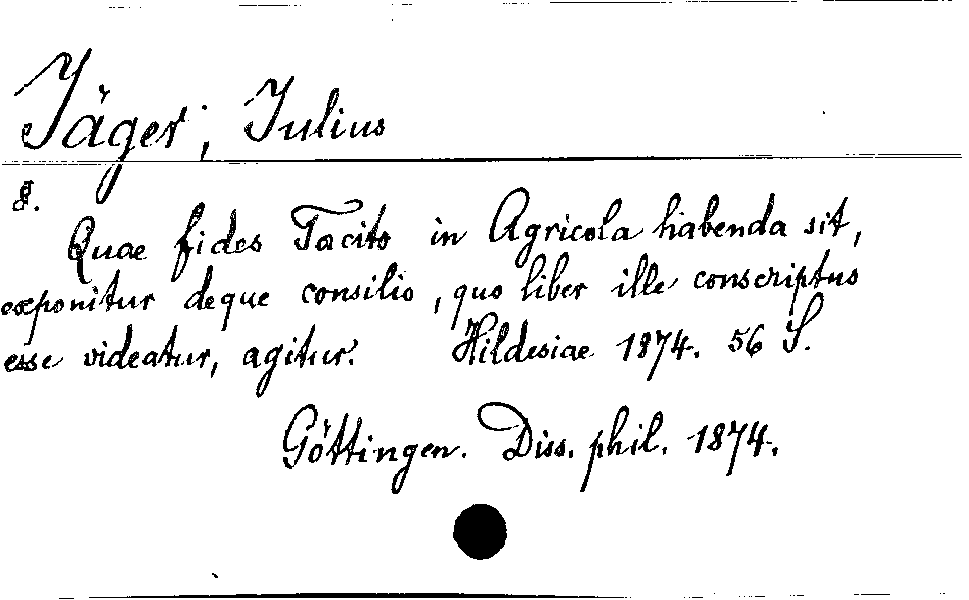 Jäger, Julius
8.
Quae fides Tacito in Agricola habenda sit,
exponitur deque consilio, quo liber ille conscriptus
esse videatur, agitur. Hildesiae 1874. 56 S.
Göttingen. Diss. phil. 1874.